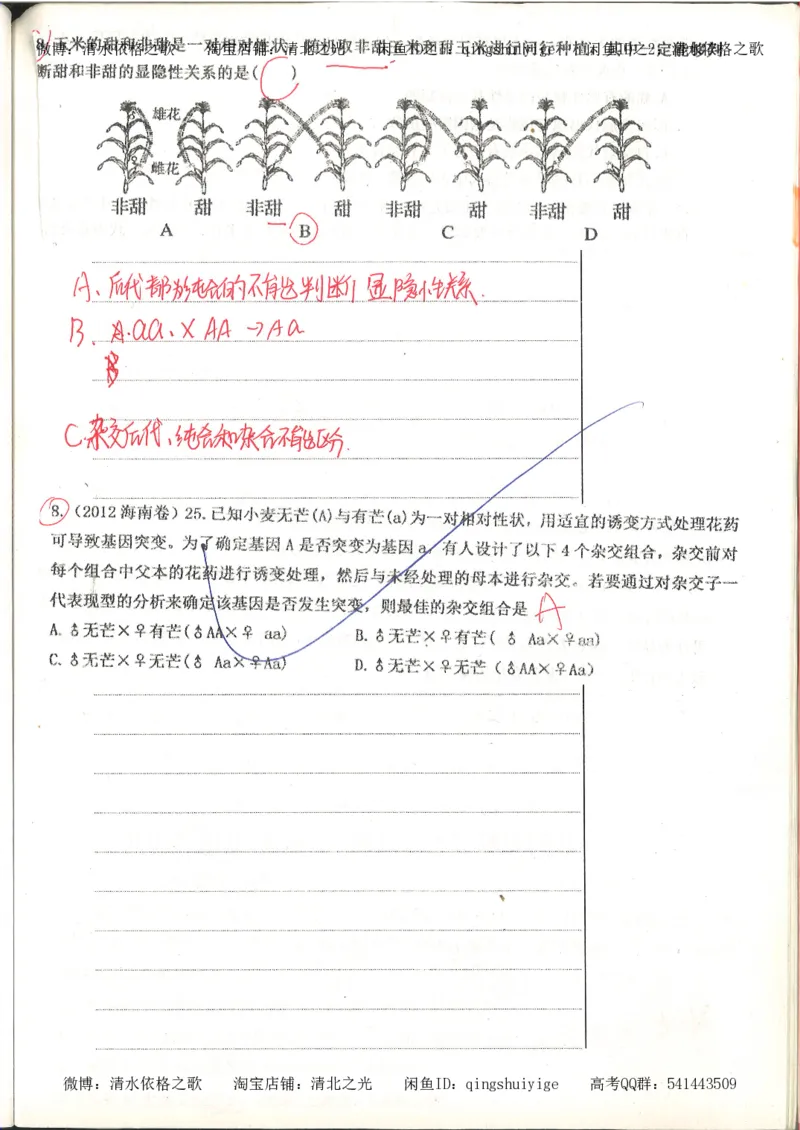 8. 玉米的甜和非甜是一对相对性状，随机取非甜玉米和甜玉米进行间行种植，其中一定能够判
微博：清水依格之歌 淘宝店铺：清北之光 闲鱼ID：qingshuiyige
断甜和非甜的显隐性关系的是( C )
雄花
雌花
非甜 甜 非甜 甜 非甜 甜 非甜 甜
A B C D
A、后代都为纯合的不能判断显隐性关系.
B、aa、X AA →Aa
C.杂交后代、纯合和杂合不能区分.
8.（2012海南卷）25.已知小麦无芒(A)与有芒(a)为一对相对性状，用适宜的诱变方式处理花药
可导致基因突变。为了确定基因 A 是否突变为基因 a，有人设计了以下 4 个杂交组合，杂交前对
每个组合中父本的花药进行诱变处理，然后与未经处理的母本进行杂交。若要通过对杂交子一
代表现型的分析来确定该基因是否发生突变，则最佳的杂交组合是 A
A.♂无芒×♀有芒(♂AA×♀ aa) B.♂无芒×♀有芒( ♂ Aa×♀aa)
C.♂无芒×♀无芒(♂ Aa×♀Aa) D.♂无芒×♀无芒 (♂AA×♀Aa)
微博：清水依格之歌 淘宝店铺：清北之光 闲鱼ID：qingshuiyige 高考QQ群：541443509